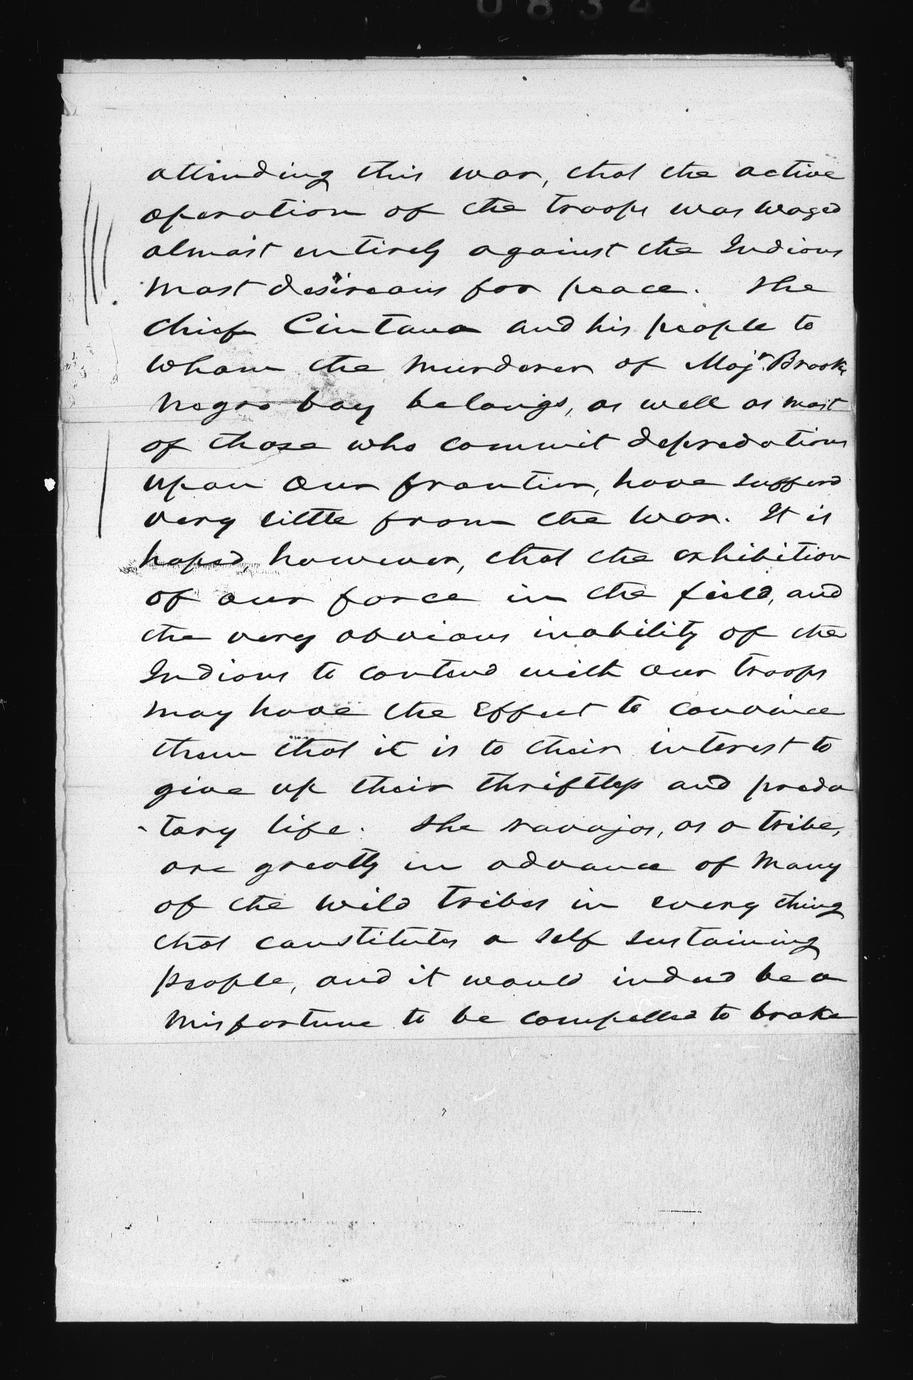 0834
attending this war, that the active
operation of the troops was waged
almost entirely against the Indians
most desireous for peace. The
Chief Cintana and his people to
whom the murderer of Majr. Brooks
negro boy belongs, as well as most
of those who commit depredations
upon our frontier, have suffered
very little from the war. It is
hoped, however, that the exhibition
of our force in the field, and
the very obvious inability of the
Indians to contend with our troops
may have the effect to convince
them that it is to their interest to
give up their thriftless and preda
-tory life. The Navajos, as a tribe,
are greatly in advance of many
of the wild tribes in every thing
that constitutes a self sustaining
people, and it would indeed be a
misfortune to be compelled to brake